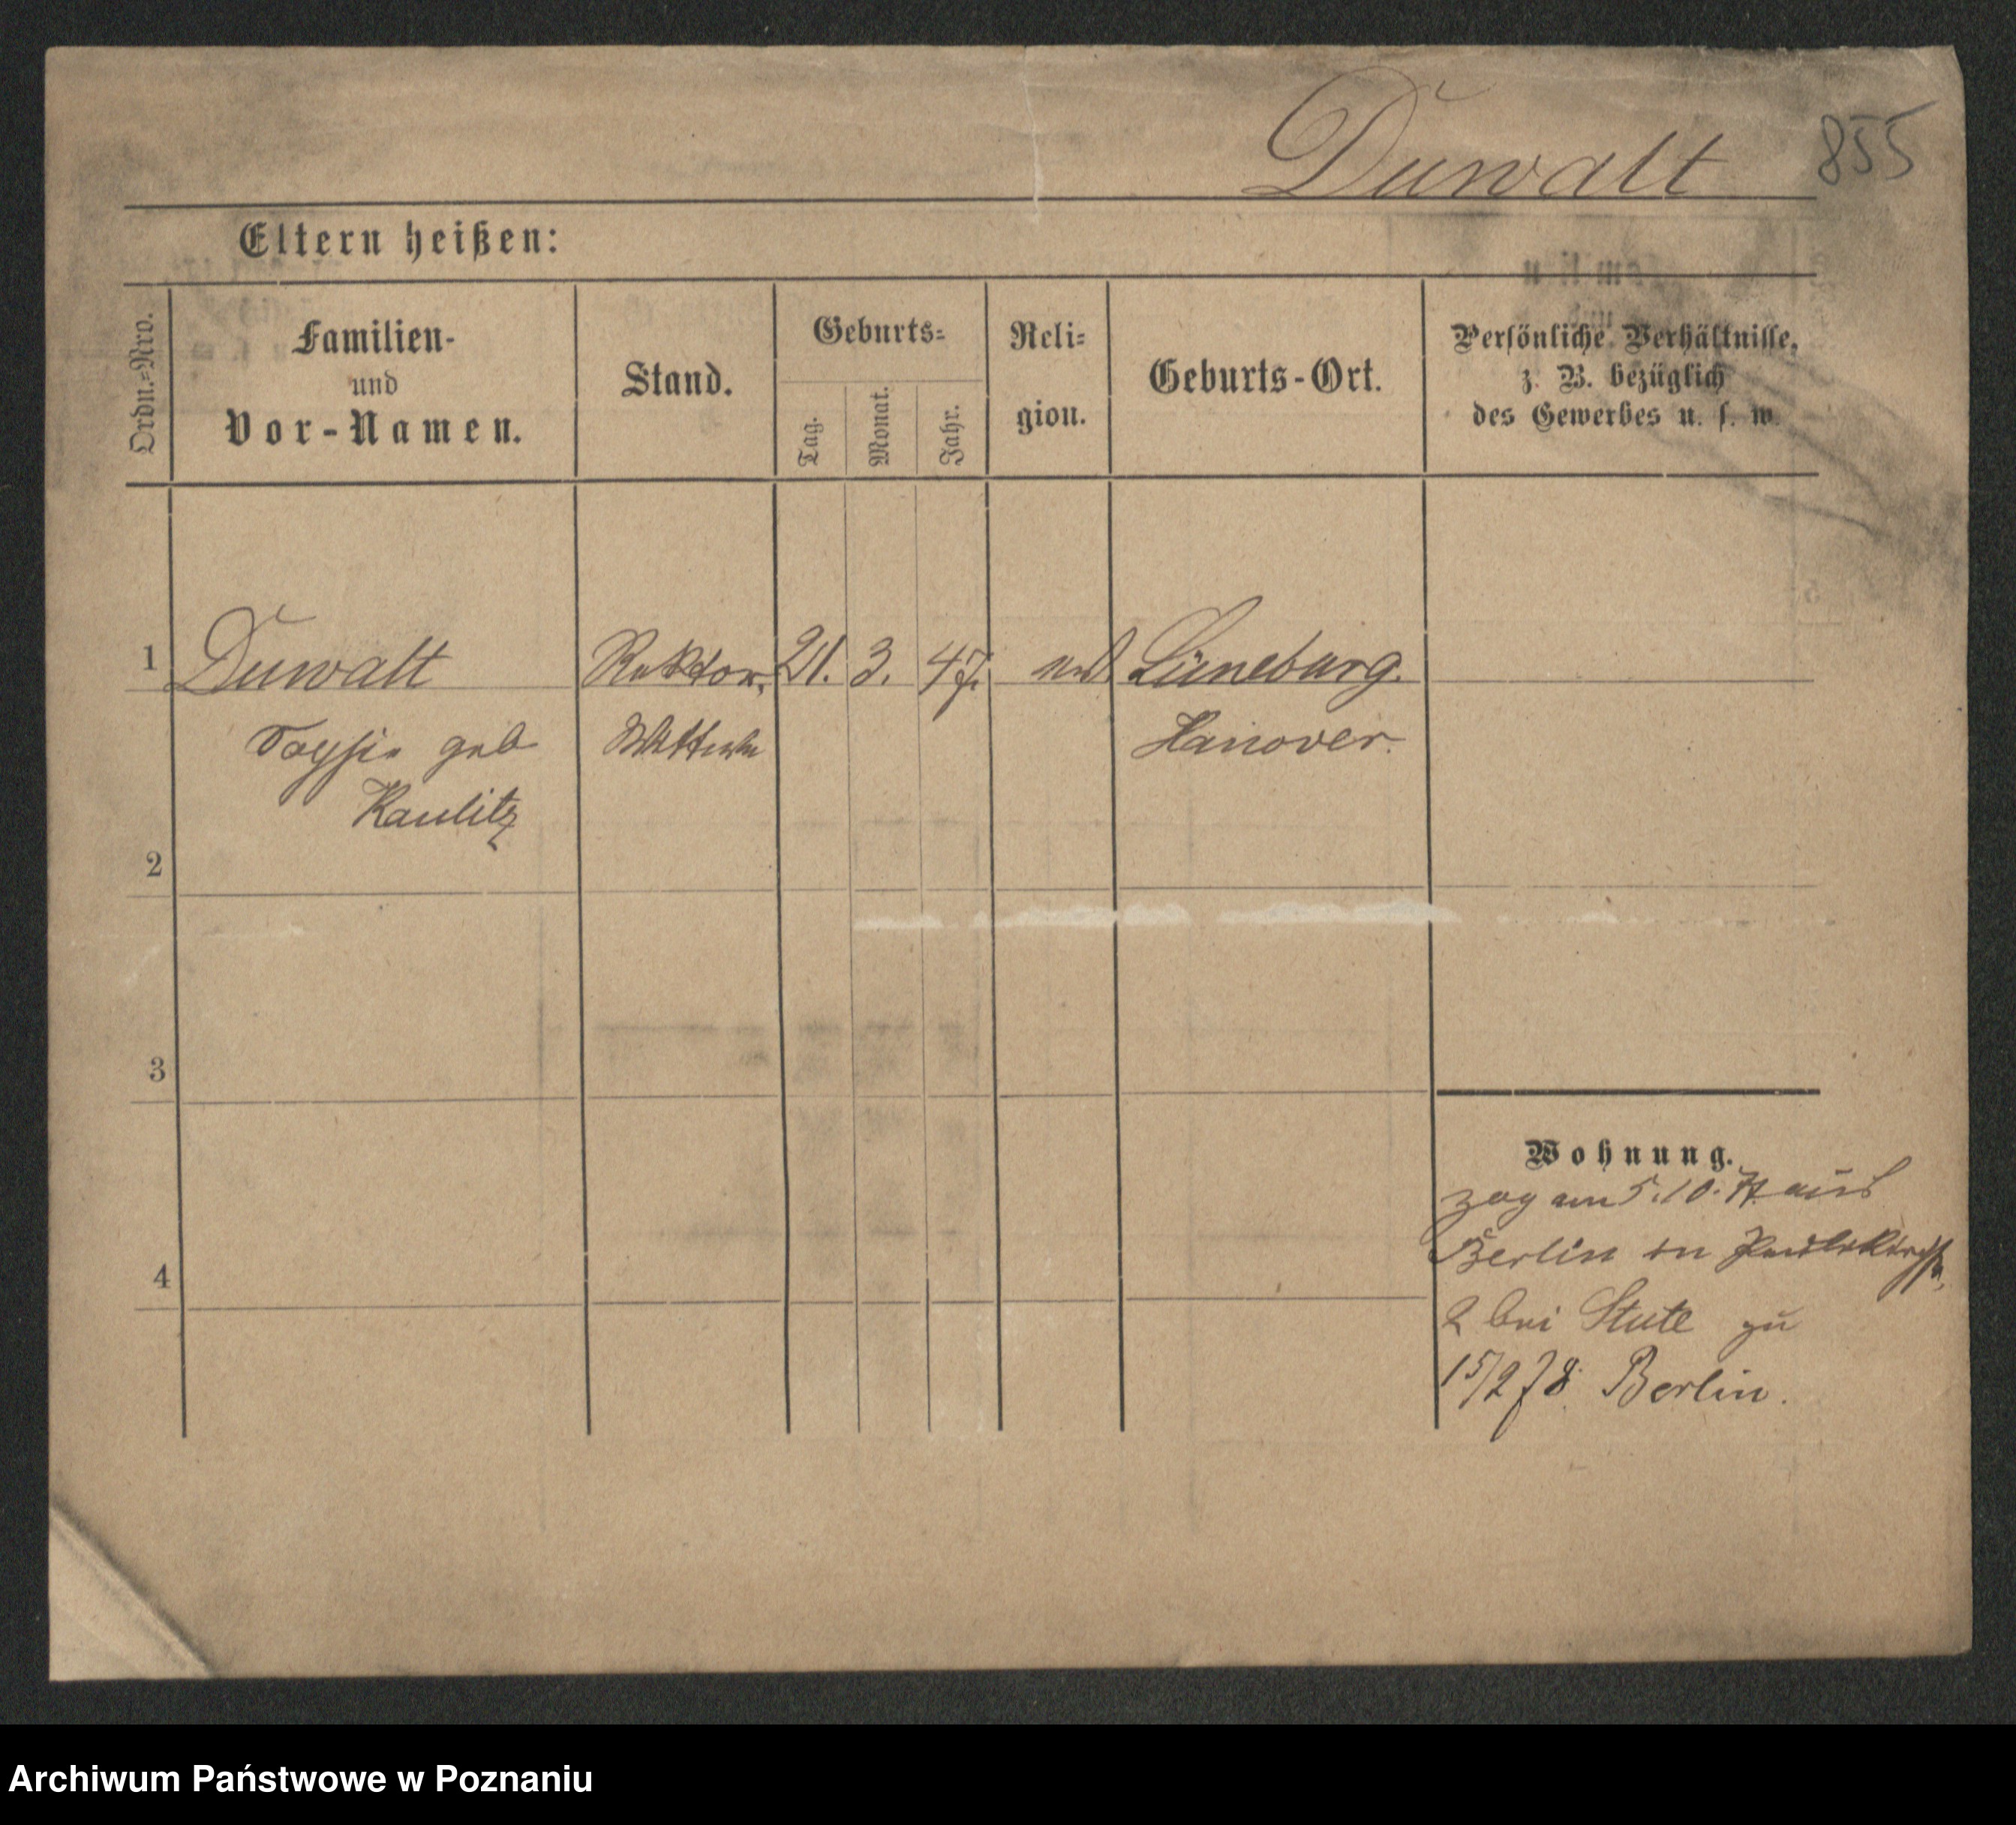 Duwalt 855
Eltern heißen:
Ordn.-Nro.
Familien-
und
Vor-Namen.
Stand.
Geburts-
Tag.
Monat.
Jahr.
Reli-
gion.
Geburts-Ort.
Persönliche Verhältnisse,
z. B. bezüglich
des Gewerbes u. s. w.
1 Duwalt Rektor. 21. 3. 47. Lüneburg.
Sophie geb Wittwe Hanover.
Kaulitz
2
3
4
Wohnung.
zog am 5.10. aus
Berlin in
2 bei Stute zu
15/2 78. Berlin.
Archiwum Państwowe w Poznaniu